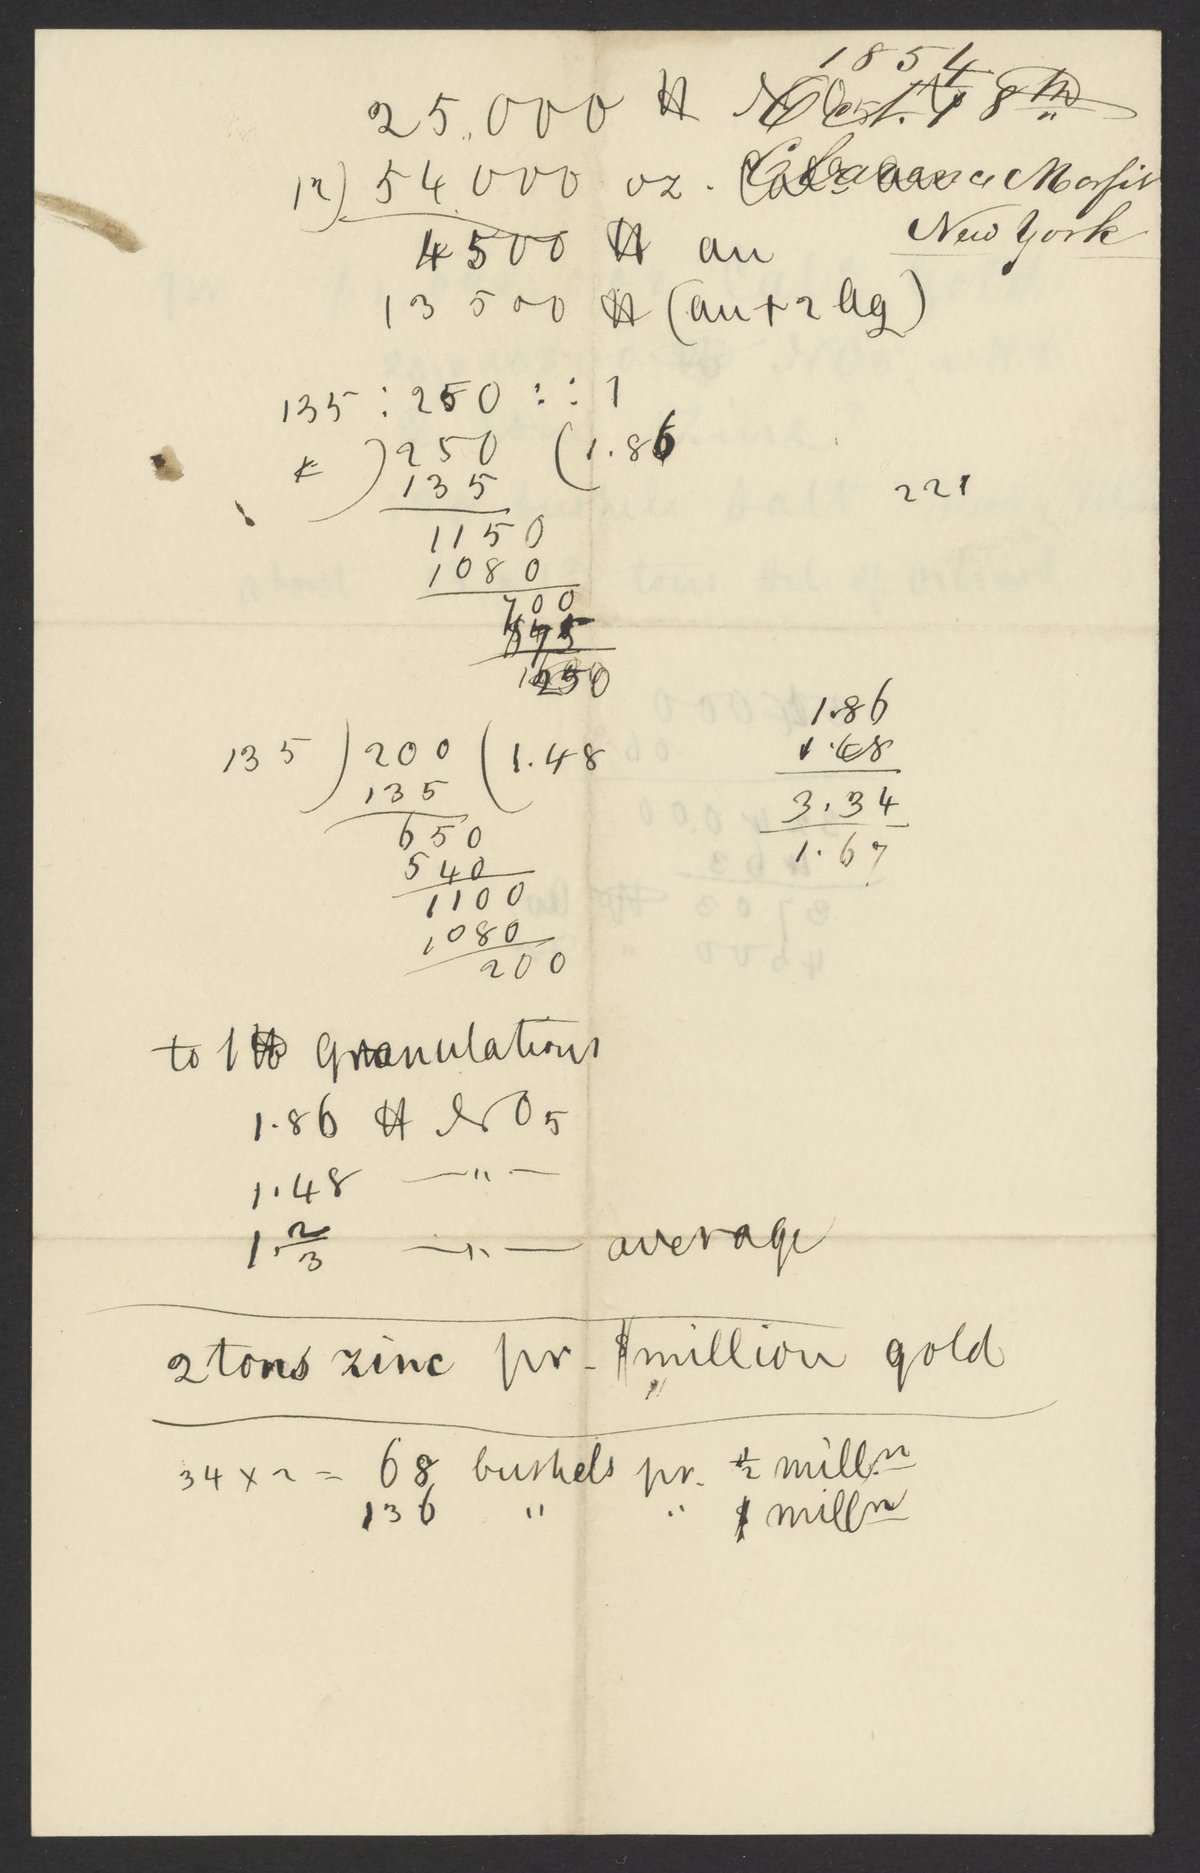 1854
25,000 ℔ NO5. Oct. 18th
12) 54,000 oz. Clarence Morfit
4500 ℔ au New York
13500 ℔ (au + 2 Ag)
135 : 250 : : 1
) 250 ( 1.86
135
221
1150
1080
700
675
250
1.86
1.48
135 ) 200 ( 1.48
135
3.34
650
1.67
540
1100
1080
200
to 1 ℔ granulations
1.86 ℔ NO5
1.48 — " —
1.2/3 — " — average
2 tons zinc pr. $ million gold
34 x 2 = 68 bushels pr. 1/2 milln
136 " " 1 milln